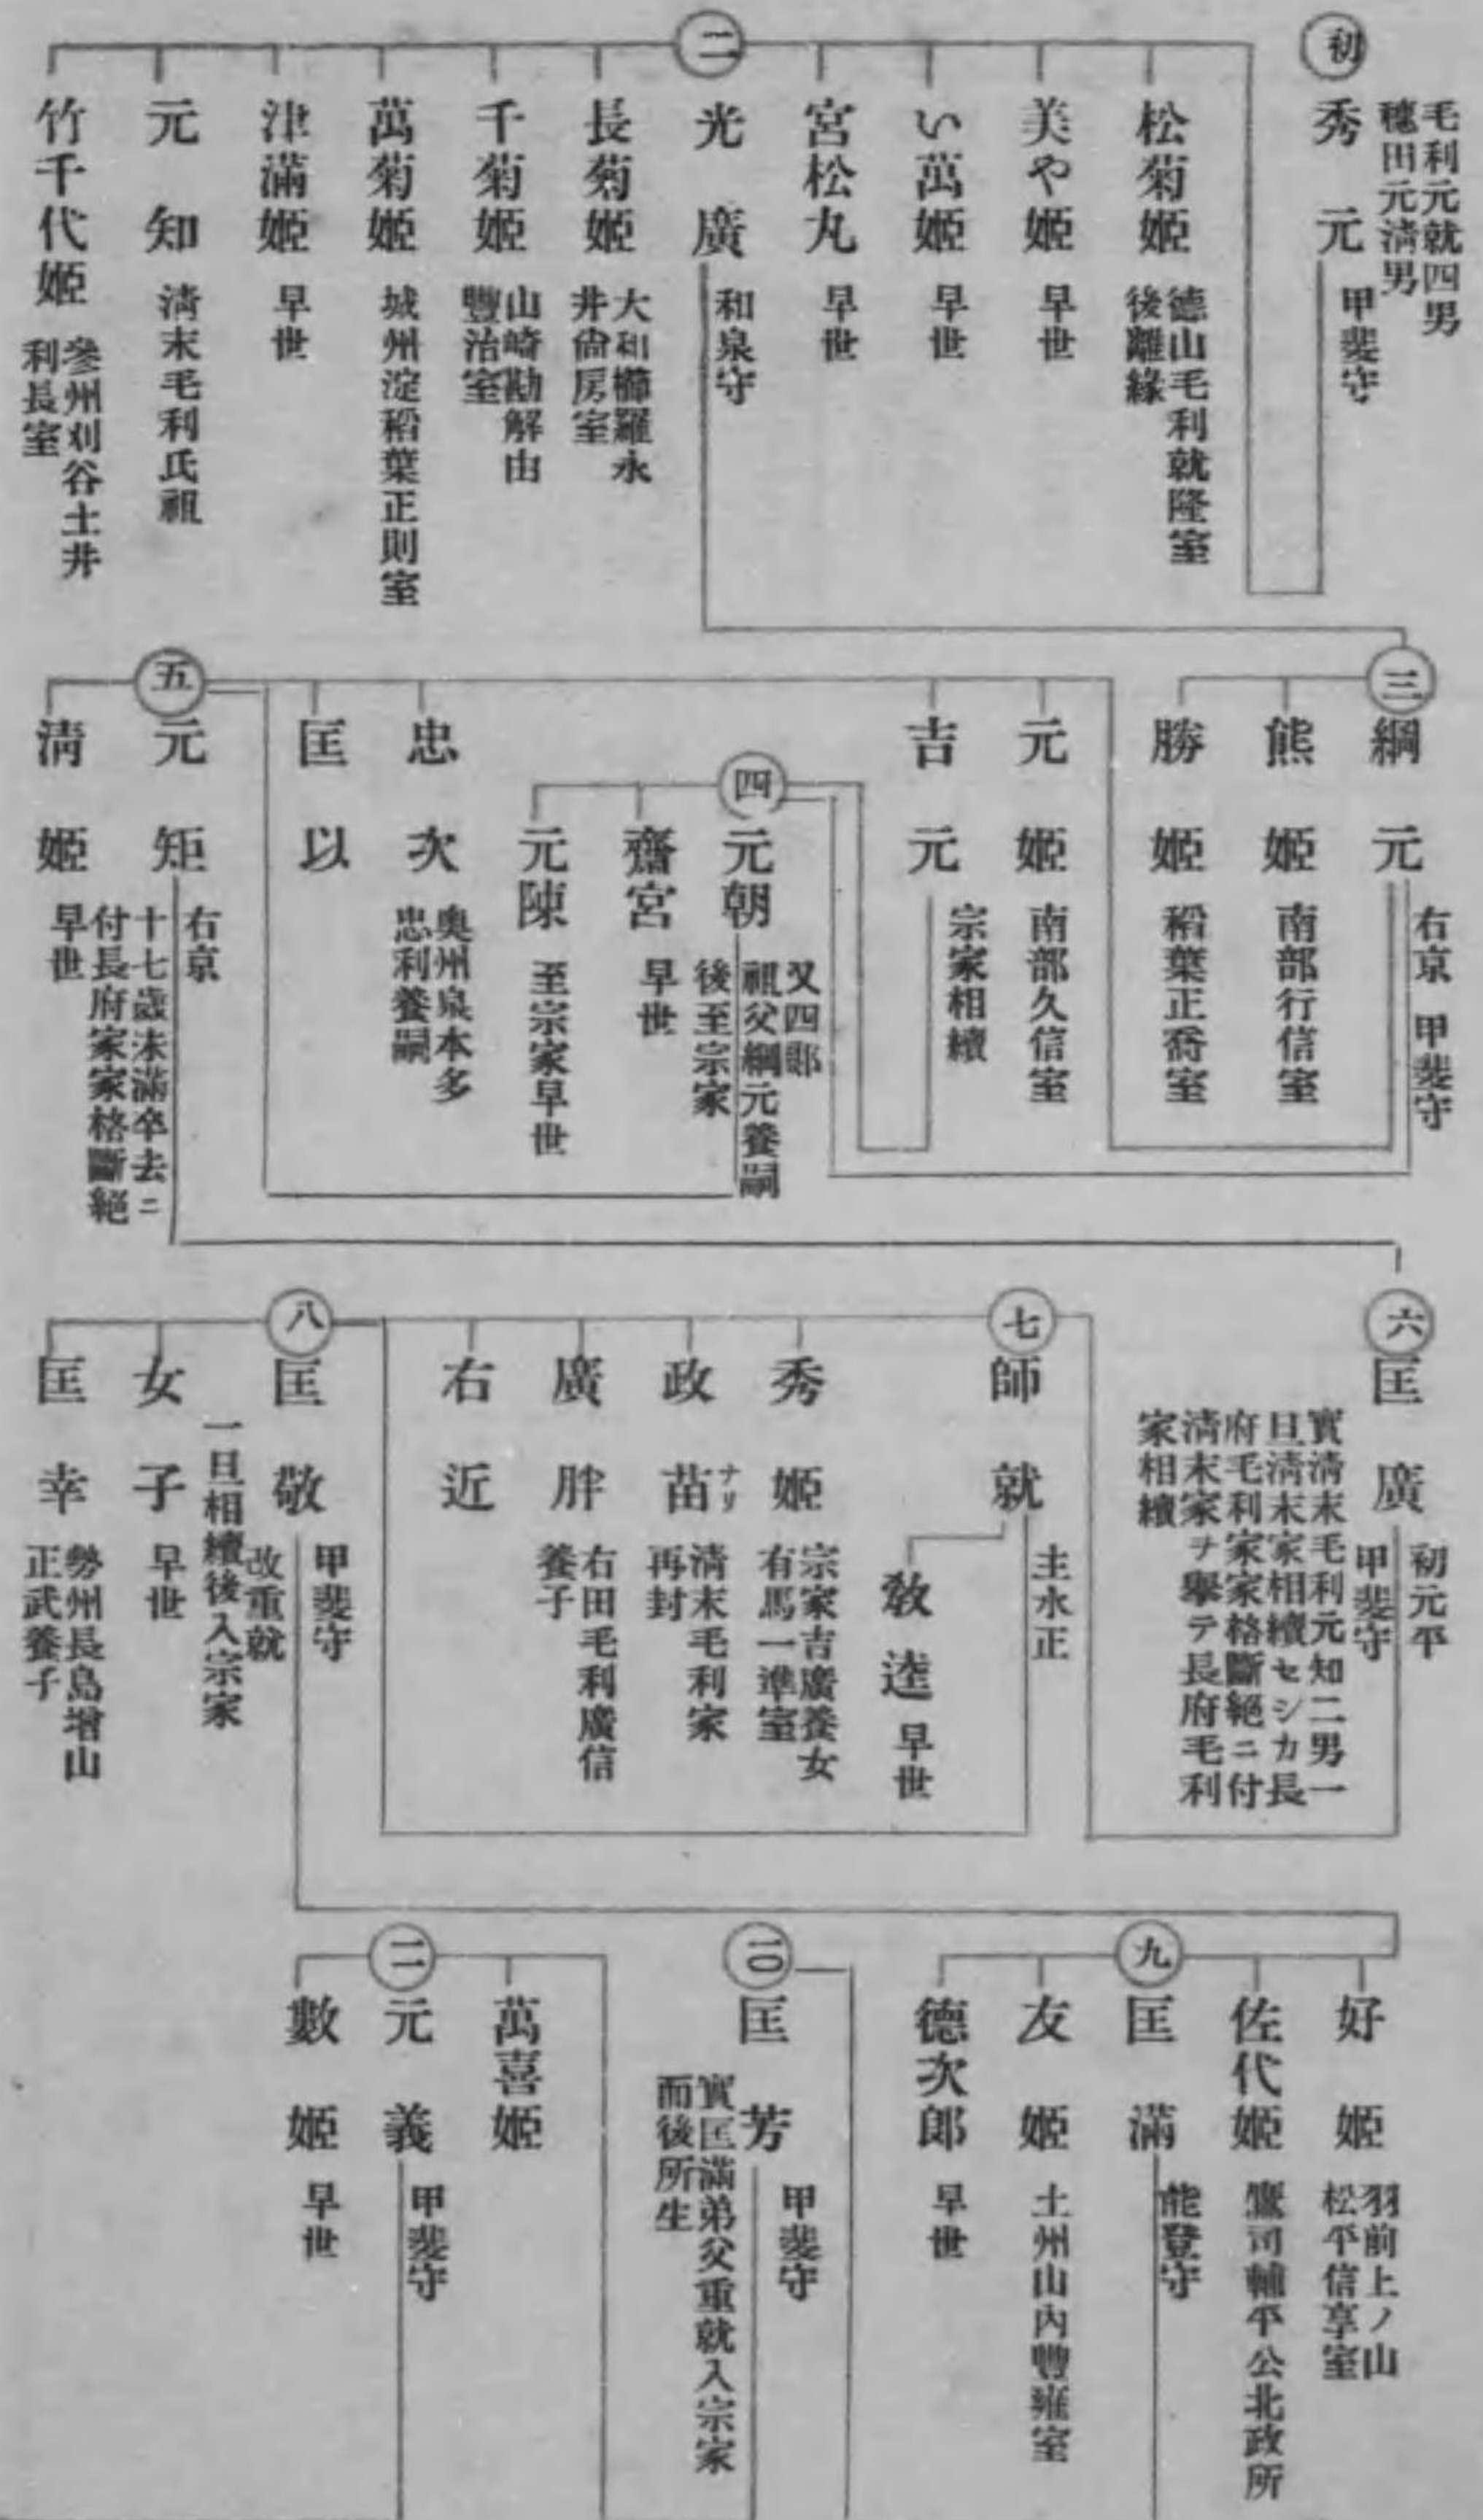 初
毛利元就四男
穗田元淸男
秀元
甲斐守
松菊姬
德山毛利就隆室
後離緣
美や姬
早世
い萬姬
早世
宮松丸
早世
二
光廣
和泉守
長菊姬
大和櫛羅永
井尙房室
千菊姬
山崎勘解由
豐治室
萬菊姬
城州淀稻葉正則室
津滿姬
早世
元知
淸末毛利氏祖
竹千代姬
參州刈谷土井
利長室
三
綱元
右京 甲斐守
熊姬
南部行信室
勝姬
稻葉正喬室
元姬
南部久信室
吉元
宗家相續
四
元朝
又四郞
祖父綱元養嗣
後至宗家
齋宮
早世
元陳
至宗家早世
忠次
奧州泉本多
忠利養嗣
匡以
五
元矩
右京
十七歲未滿卒去ニ
付長府家家格斷絕
淸姬
早世
六
匡廣
初元平
甲斐守
實淸末毛利元知二男一
旦淸末家相續セシカ長
府毛利家家格斷絕ニ付
淸末家ヲ擧テ長府毛利
家相續
七
師就
主水正
敎逵
早世
秀姬
宗家吉廣養女
有馬一準室
政苗
ナリ
淸末毛利家
再封
廣胖
右田毛利廣信
養子
右近
八
匡敬
甲斐守
改重就
一旦相續後入宗家
女子
早世
匡幸
勢州長島增山
正武養子
好姬
羽前上ノ山
松平信享室
佐代姬
鷹司輔平公北政所
九
匡滿
能登守
友姬
土州山內豐雍室
德次郎
早世
一〇
匡芳
甲斐守
實匡滿弟父重就入宗家
而後所生
萬喜姬
一一
元義
甲斐守
數姬
早世